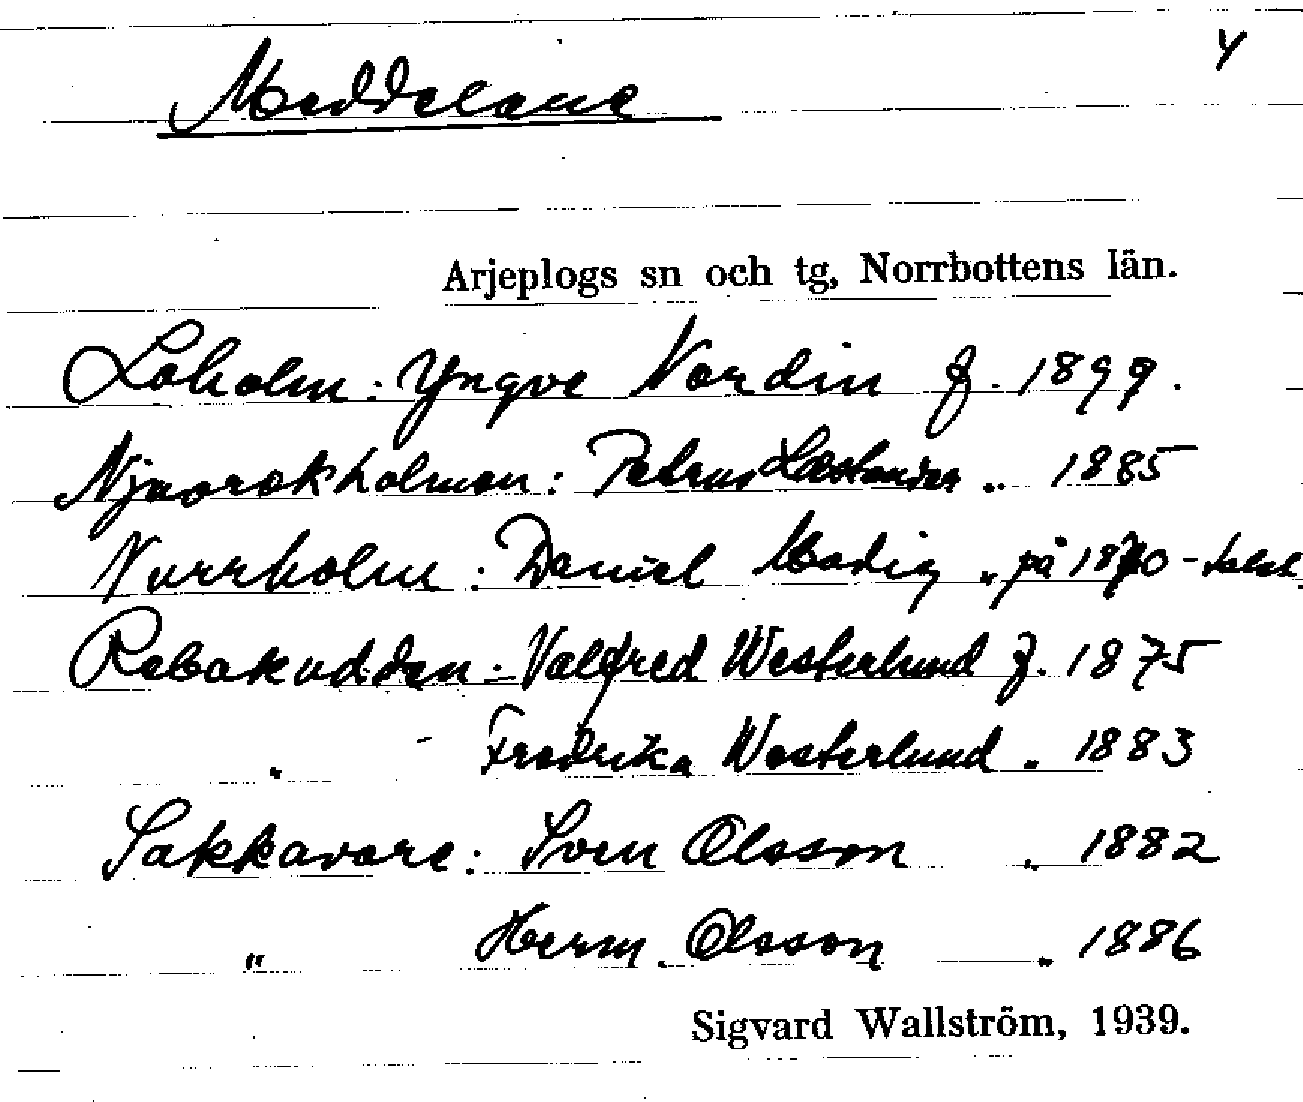 4
Meddelare
Arjeplogs sn och tg, Norrbottens län.
Loholm: Yngve Nordin f. 1899.
Njavrokholmen: Petrus Læstander „ 1885
Nurrholm: Daniel Modig „ på 1870-talet
Rebakudden: Valfred Westerlund f. 1875
„ - Fredrika Westerlund „ 1883
Sakkavare: Sven Olsson „ 1882
„ Herm. Olsson „ 1886
Sigvard Wallström, 1939.